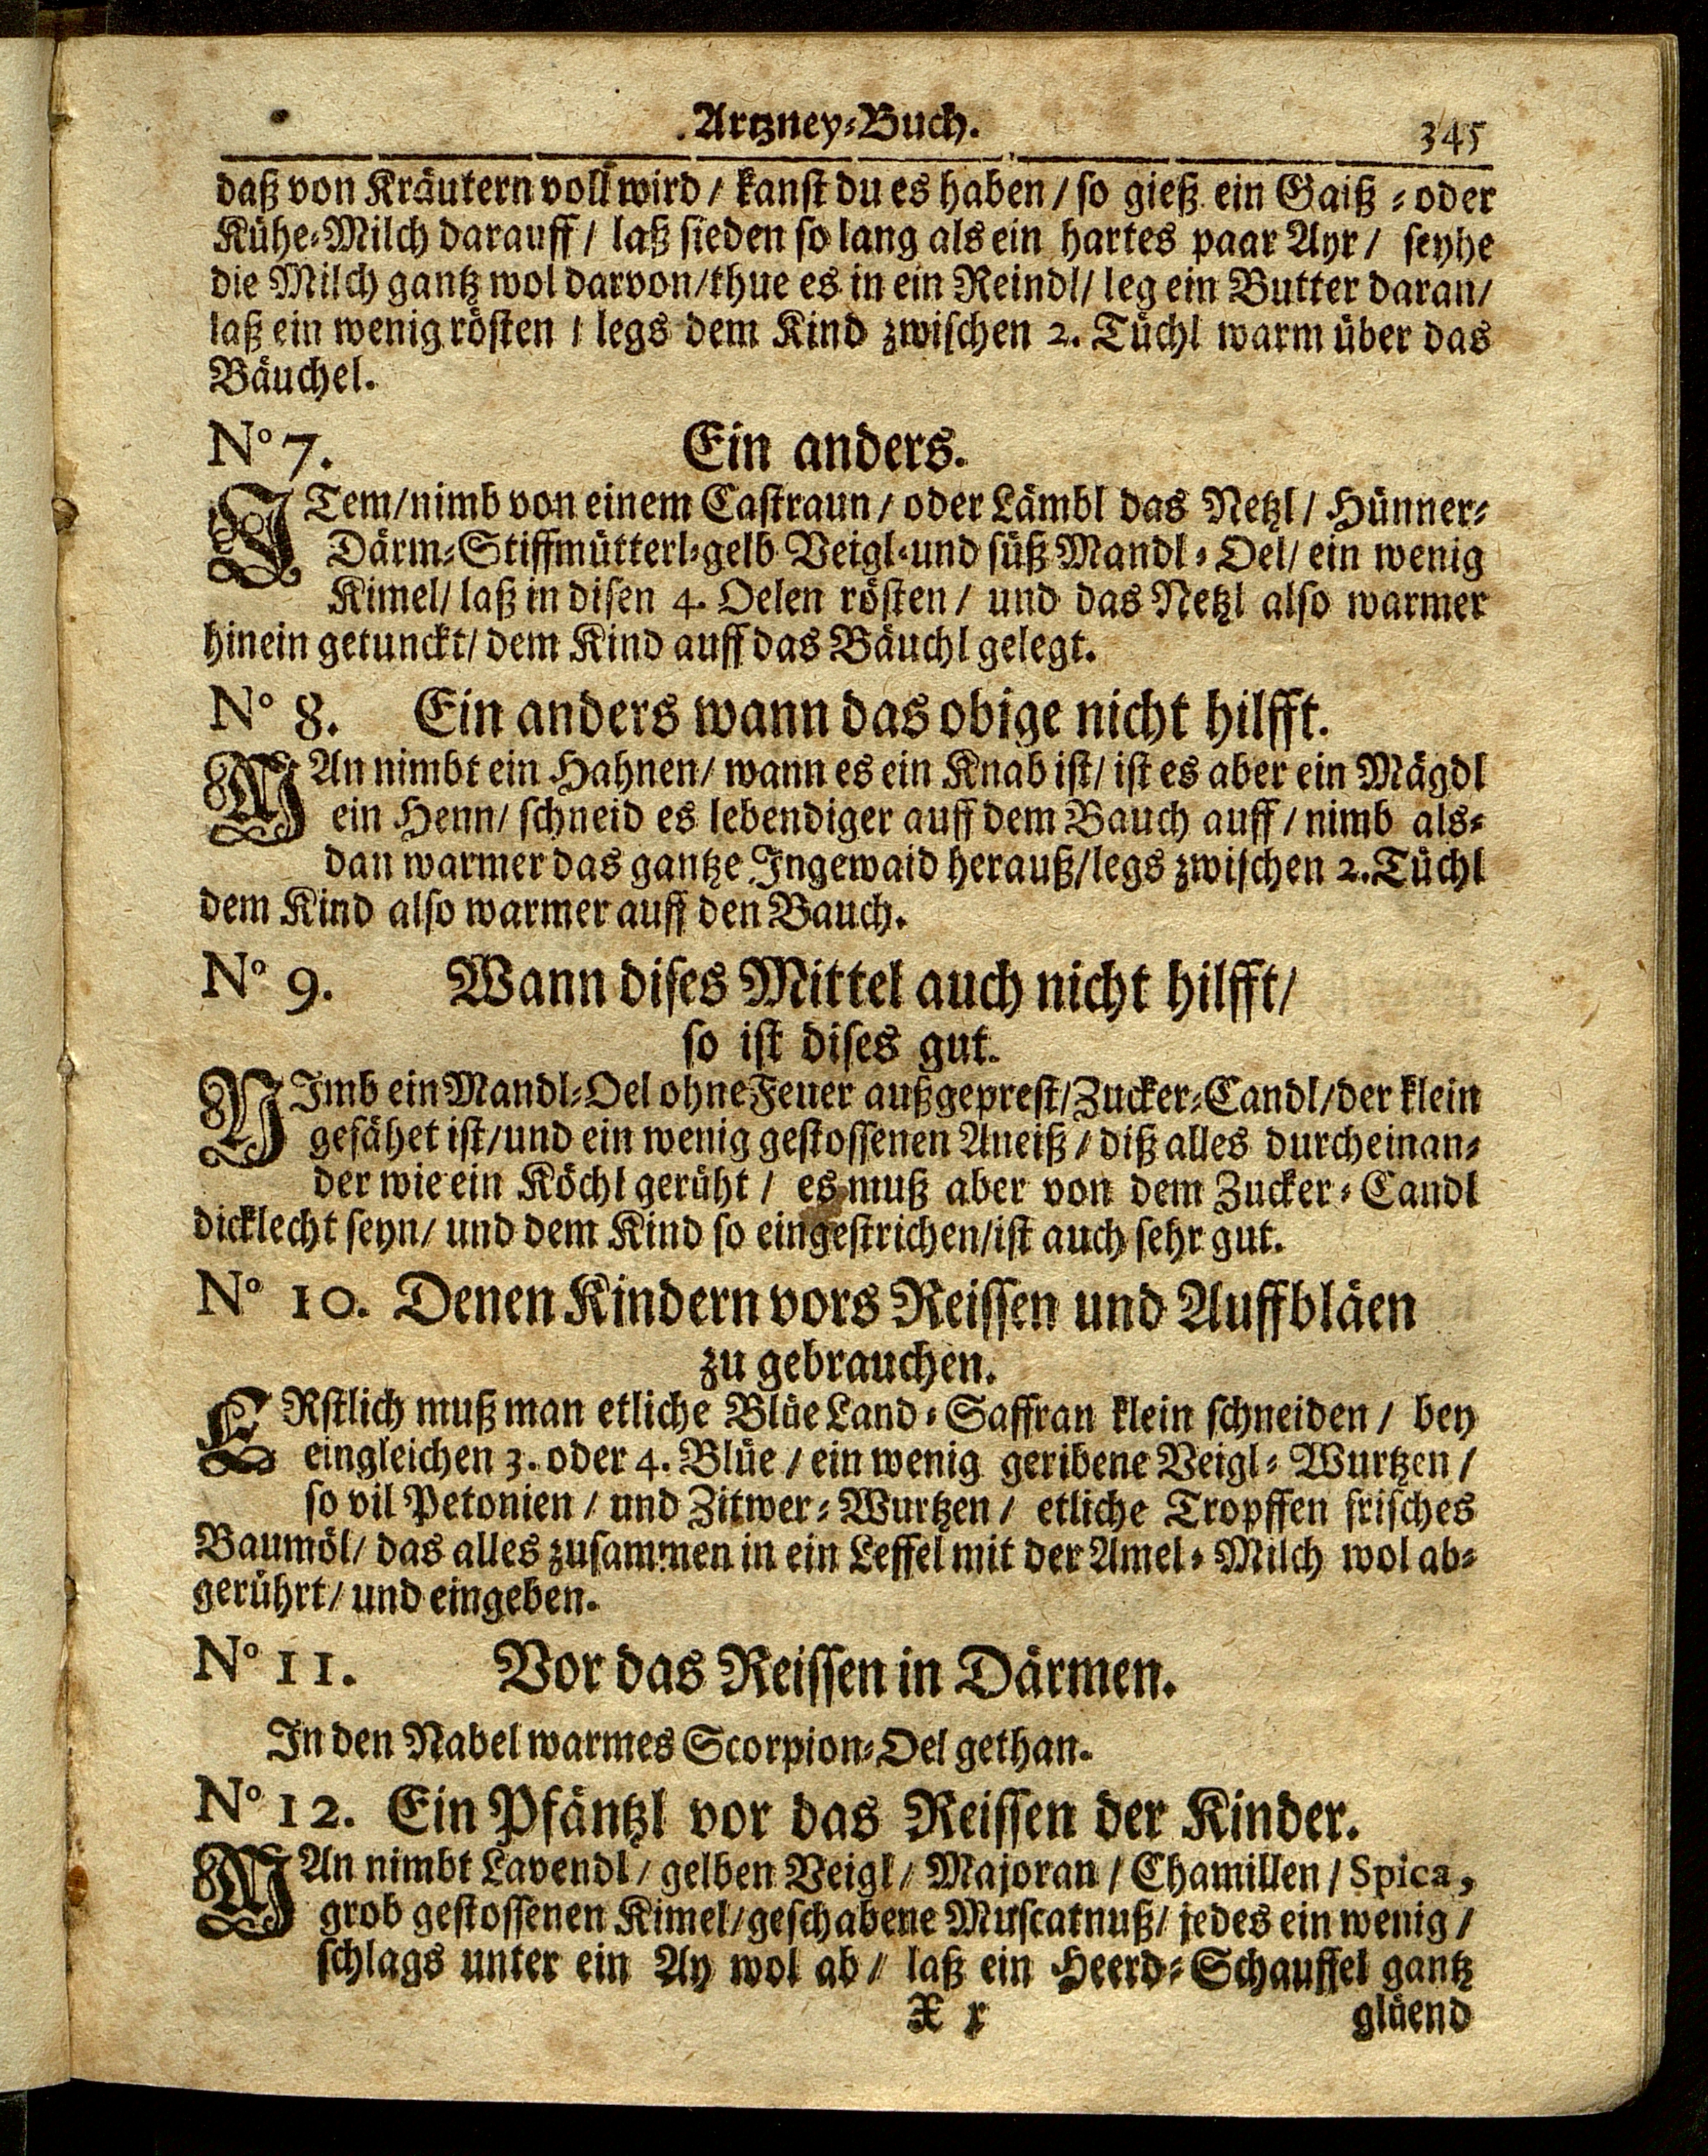 Artzney-Buch. 345
daß von Kräutern voll wird / kanst du es haben / so gieß ein Gaiß - oder
Kühe-Milch darauff / laß sieden so lang als ein hartes paar Ayr / seyhe
die Milch gantz wol darvon / thue es in ein Reindl / leg ein Butter daran /
laß ein wenig rösten / legs dem Kind zwischen 2. Tüchl warm über das
Bäuchel.
No 7. Ein anders.
ITem / nimb von einem Castraun / oder Lämbl das Netzl / Hünner-
Därm-Stiffmütterl-gelb Veigl-und süß Mandl-Oel / ein wenig
Kimel / laß in disen 4. Oelen rösten / und das Netzl also warmer
hinein getunckt / dem Kind auff das Bäuchl gelegt.
No 8. Ein anders wann das obige nicht hilfft.
MAn nimbt ein Hahnen / wann es ein Knab ist / ist es aber ein Mägdl
ein Henn / schneid es lebendiger auff dem Bauch auff / nimb als-
dan warmer das gantze Ingewaid herauß / legs zwischen 2. Tüchl
dem Kind also warmer auff den Bauch.
No 9. Wann dises Mittel auch nicht hilfft /
so ist dises gut.
NImb ein Mandl-Oel ohne Feuer außgeprest / Zucker-Candl / der klein
gefähet ist / und ein wenig gestossenen Aneiß / diß alles durcheinan-
der wie ein Köchl gerüht / es muß aber von dem Zucker-Candl
dicklecht seyn / und dem Kind so eingestrichen / ist auch sehr gut.
No 10. Denen Kindern vors Reissen und Auffbläen
zu gebrauchen.
ERstlich muß man etliche Blüe Land-Saffran klein schneiden / bey
eingleichen 3. oder 4. Blüe / ein wenig geribene Veigl-Wurtzen /
so vil Petonien / und Zitwer-Wurtzen / etliche Tropffen frisches
Baumöl / das alles zusammen in ein Leffel mit der Amel-Milch wol ab-
gerührt / und eingeben.
No 11. Vor das Reissen in Därmen.
In den Nabel warmes Scorpion-Oel gethan.
No 12. Ein Pfäntzl vor das Reissen der Kinder.
MAn nimbt Lavendl / gelben Veigl / Majoran / Chamillen / Spica,
grob gestossenen Kimel / geschabene Muscatnuß / jedes ein wenig /
schlags unter ein Ay wol ab / laß ein Heerd-Schauffel gantz
X x glüend